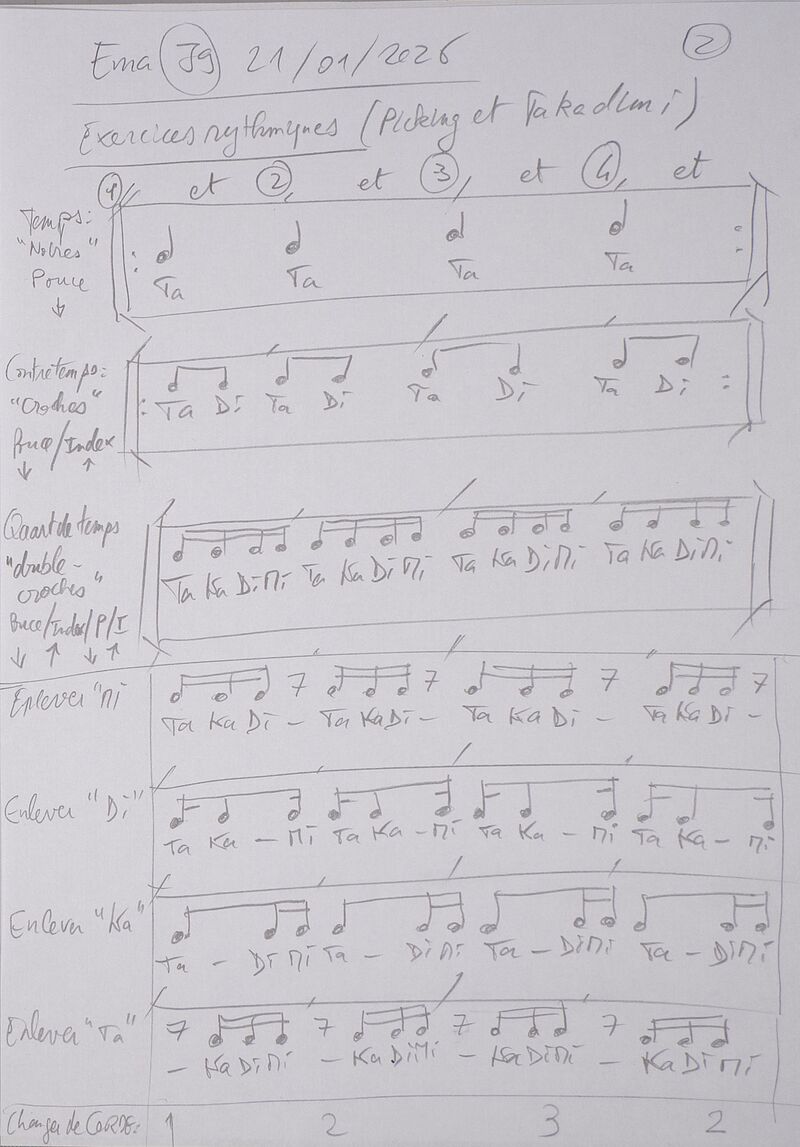 Ema J9 21/01/2026 2
Exercices rythmiques (Picking et Takadimi)
1 et 2 et 3 et 4 et
Temps:
"Noires"
Pouce
↓
Ta Ta Ta Ta
Contretemps:
"Croches"
Pouce/Index
↓ ↑
Ta Di Ta Di Ta Di Ta Di
Quart de temps
"double-
croches"
Pouce/Index/P/I
↓ ↑ ↓ ↑
Ta Ka Di Mi Ta Ka Di Mi Ta Ka Di Mi Ta Ka Di Mi
Enlever "Mi
Ta Ka Di – Ta Ka Di – Ta Ka Di – Ta Ka Di –
Enlever "Di"
Ta Ka – Mi Ta Ka – Mi Ta Ka – Mi Ta Ka – Mi
Enlever "Ka"
Ta – Di Mi Ta – Di Mi Ta – Di Mi Ta – Di Mi
Enlever "Ta"
– Ka Di Mi – Ka Di Mi – Ka Di Mi – Ka Di Mi
Changer de CORDE: 1 2 3 2